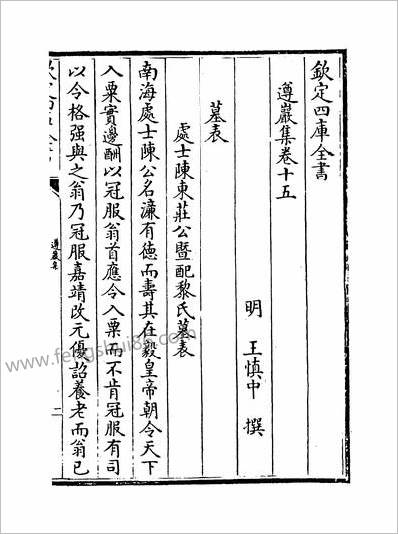 欽定四庫全書
遵巖集卷十五
明 王慎中 撰
墓表
處士陳東莊公暨配黎氏墓表
南海處士陳公名濂有德而壽其在毅皇帝朝令天下
入粟實邊酬以冠服翁首應令入粟而不肯冠服有司
以令格强與之翁乃冠服嘉靖改元優詔養老而翁已
遵巖集
二